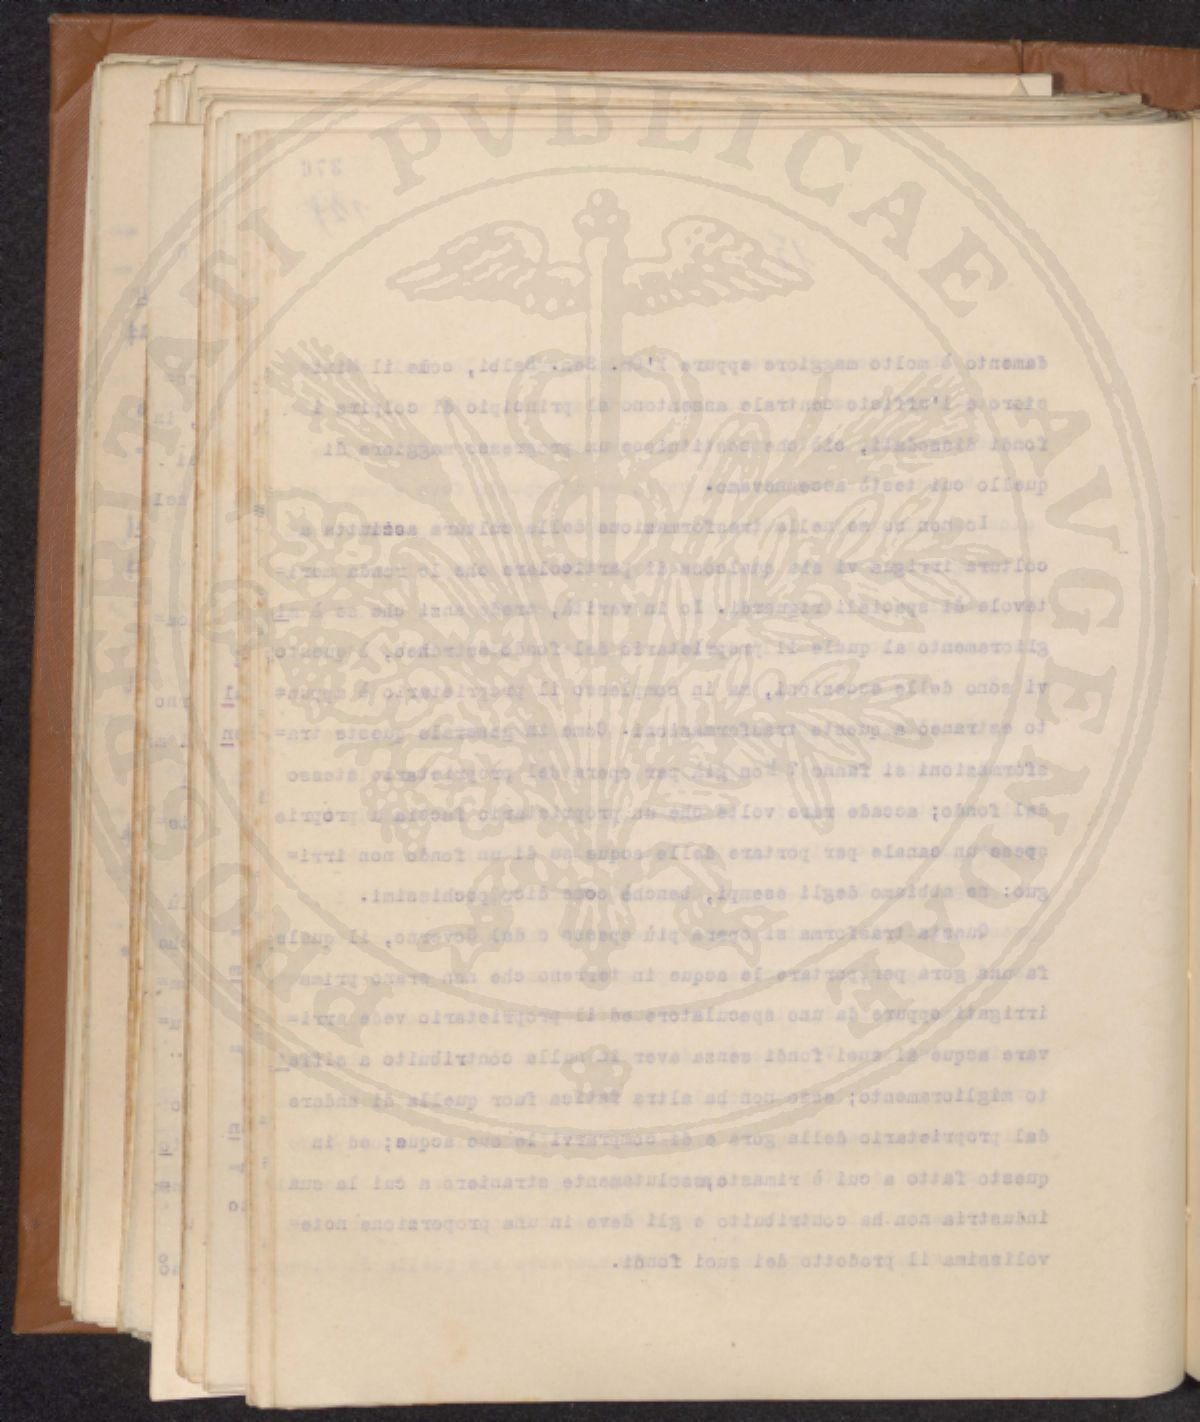 376
damento è molto maggiore eppure l'On. Sen. Balbi, come il Mini=
stero e l'ufficio centrale assentono al principio di colpire i
fondi dissodati, ciò che costituisce un progresso maggiore di
quello cui testè accennavamo.
Io non so se nella trasformazione della cultura asciutta a
coltura irrigua vi sia qualcosa di particolare che lo renda meri=
tevole di speciali riguardi. Io in verità, credo anzi che se è mi
glioramento al quale il proprietario del fondo estraneo, è questo;
vi sono delle eccezioni, ma in complesso il proprietario è appun=
to estraneo a queste trasformazioni. Come in generale queste tra=
sformazioni si fanno ? Non già per opera del proprietario stesso
del fondo; accade rare volte che un proprietario faccia a proprie
spese un canale per portare delle acque su di un fondo non irri=
guo: ne abbiamo degli esempi, benchè come dico pochissimi.
Questa trasforma si opera più spesso o dal Governo, il quale
fa una gora per portare le acque in terreno che non erano prima
irrigati oppure da uno speculatore ed il proprietario vede arri=
vare acque ai suoi fondi senza aver in nulla contribuito a siffat
to miglioramento; esso non ha altra fatica fuor quella di andare
dal proprietario della gora e di comprarvi le sue acque; ed in
questo fatto a cui è rimasto assolutamente straniero a cui la sua
industria non ha contribuito e gli deve in una proporzione note=
volissima il prodotto dei suoi fondi.
PROSPERITATI PVBLICAE AVGENDAE